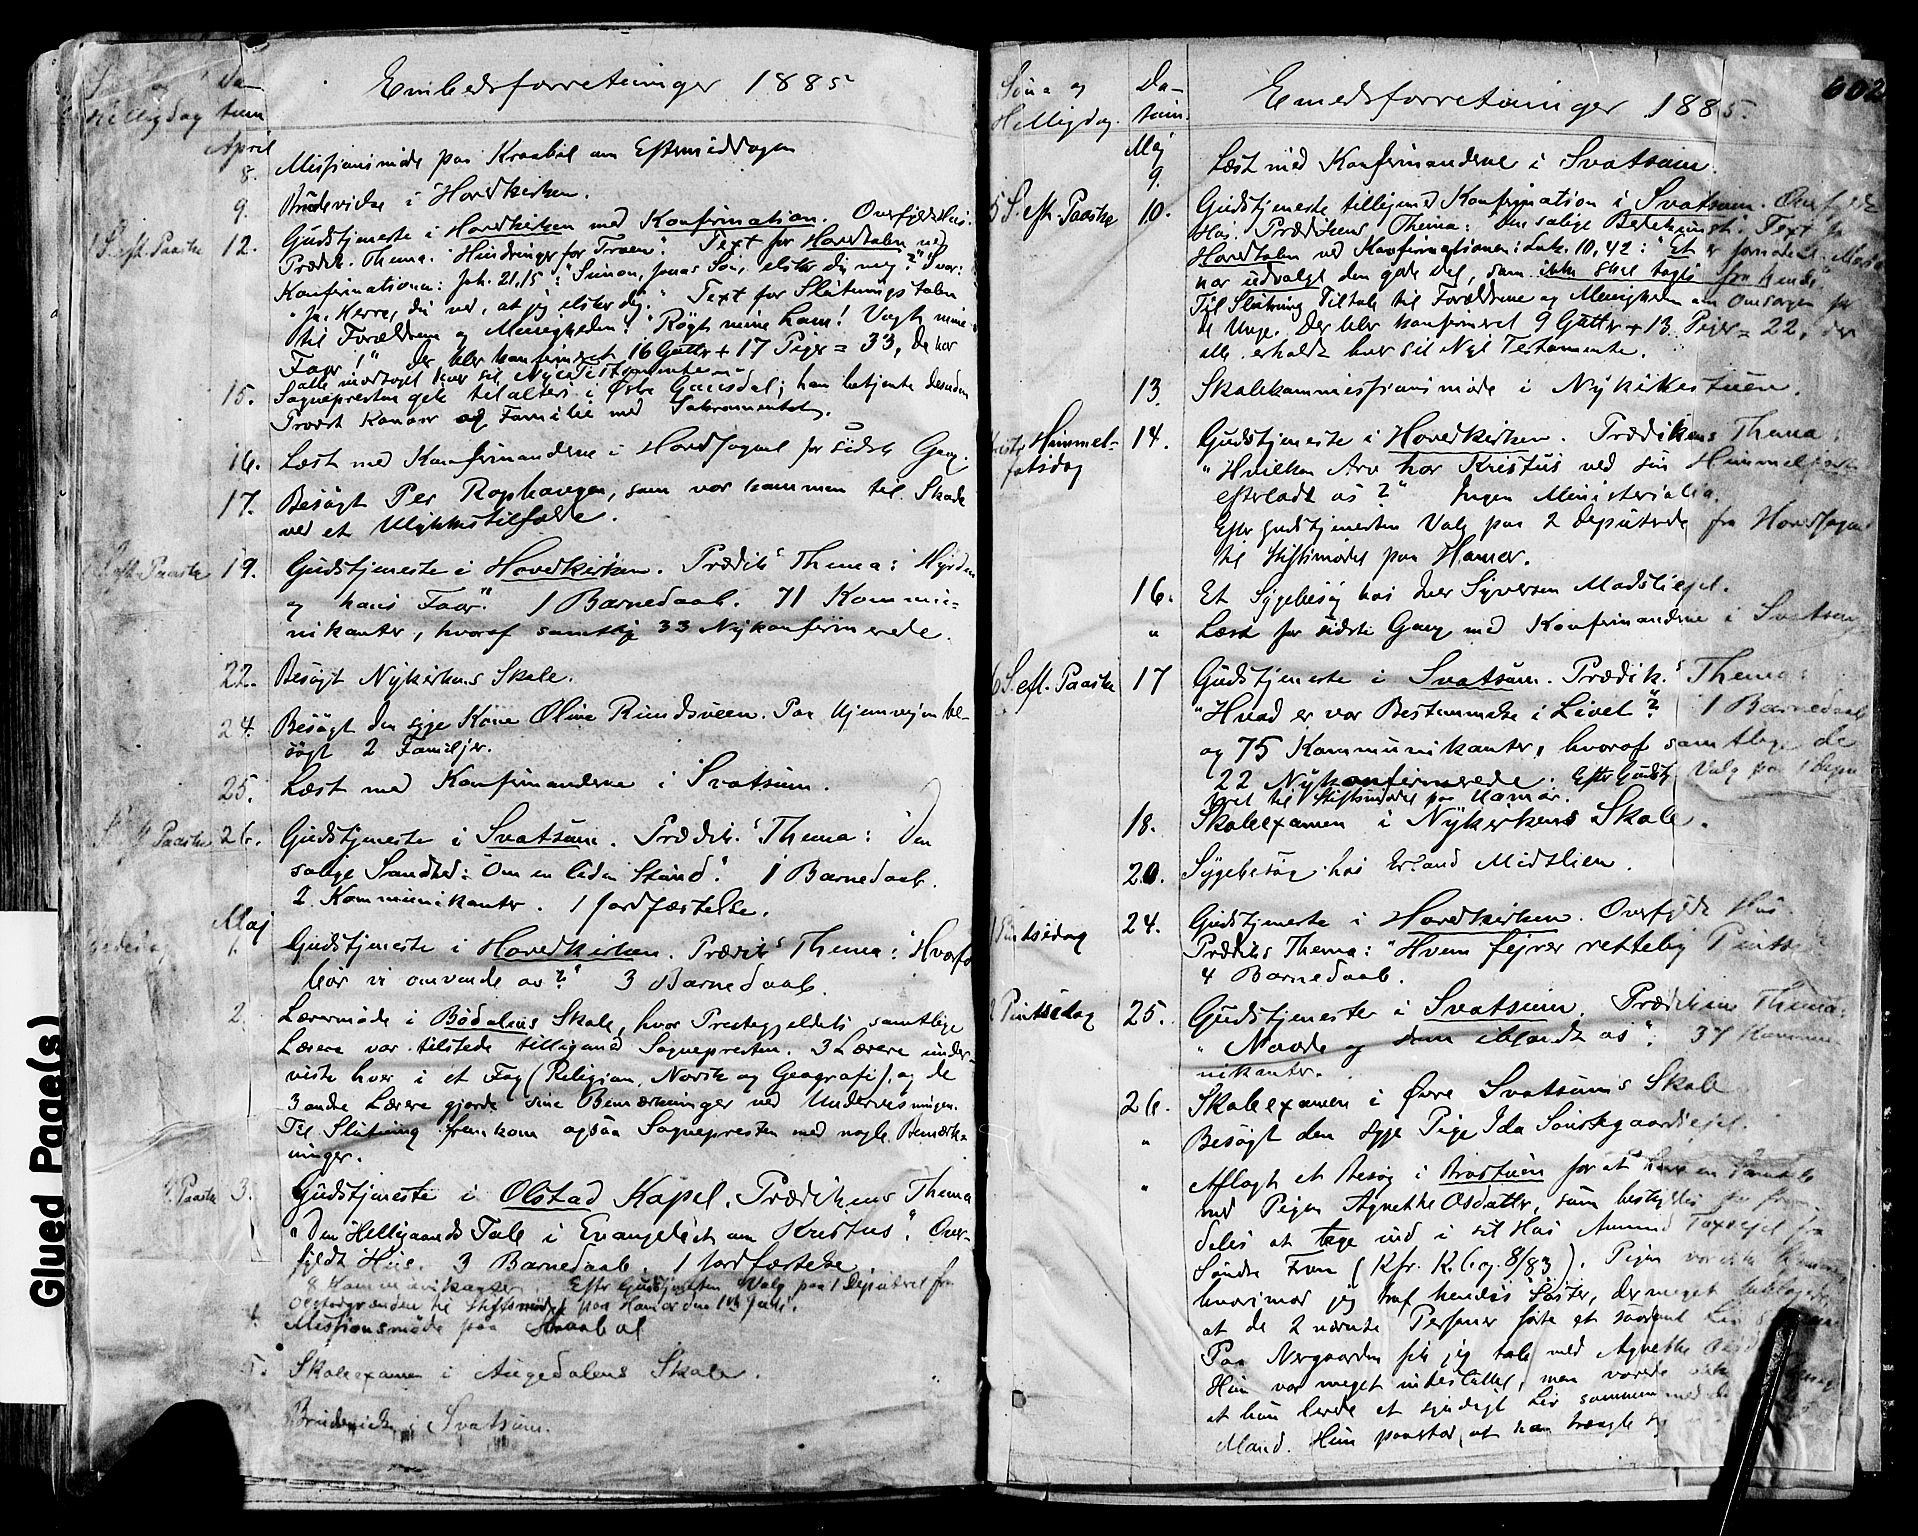 Embedsforretninger 1885
Helligdag
Da-
tum
April
8. Missionsmøde paa Kraabøl om Eftermiddagen
9. Brudevielse i Hovedkirken.
S. eft. Paaske 12. Gudstjeneste i Hovedkirken med Konfirmation. Overfyldt Hus.
Prædik. Thema: "Hindringer for Troen". Text for Hovedtalen ved
Konfirmationen: Joh. 21,15: "Simon, Jonas Søn, elsker du mig?" Svar:
"Ja, Herre, du ved, at jeg elsker dig." Text for Slutningstalen
til Forældrene og Menigheden: "Røgt mine Lam! Vogt mine
Faar!" Der blev konfirmeret 16 Gutter + 17 Piger = 33, de har
alle modtaget hver sit Nyt Testamente.
15. Sognepresten gik til alters i Østre Gausdal; han betjente desuden
Provst Kanaar og Familie med Sakramentet.
16. Læst med Konfirmanderne i Hovedsognet for sidste Gang.
17. Besøgt Per Rophaugen, som var kommen til Skade
ved et Ulykkestilfælde.
eft. Paaske 19. Gudstjeneste i Hovedkirken. Prædik's Thema: "Hyrden
og hans Faar." 1 Barnedaab. 71 Kommu-
nikanter, hvoraf samtlige 33 Nykonfirmerede.
22. Besøgt Nykirkens Skole.
24. Besøgt den syge Kone Oline Rundsveen. Paa Hjemvejen be-
søgt 2 Familjer.
25. Læst med Konfirmanderne i Svatsum.
Paaske 26. Gudstjeneste i Svatsum. Prædik's Thema: "Den
salige Sandhed: Om en liden Stund". 1 Barnedaab.
2 Kommunikanter. 1 Jordfæstelse.
Maj
1. Gudstjeneste i Hovedkirken. Prædik's Thema: "Hvorfor
bør vi omvende os?" 3 Barnedaab.
2. Lærermøde i Bødalens Skole, hvor Prestegjeldets samtlige
Lærere var tilstede tilligemed Sognepresten. 3 Lærere under-
viste hver i et Fag (Religion, Norsk og Geografi), og de
3 andre Lærere gjorde sine Bemærkninger ved Undervisningen.
Til Slutning fremkom ogsaa Sognepresten med nogle Bemærk-
ninger.
Paaske 3. Gudstjeneste i Olstad Kapel. Prædikens Thema
"Den Helligaands Tale i Evangeliet om Kristus". Over-
fyldt Hus. 3 Barnedaab. 1 Jordfæstelse.
8 Kommunikanter. Efter Gudstjenesten Valg paa 1 Deputeret fra
Olstadgrænden til Stiftsmødet paa Hamar den
4. Missionsmøde paa Kraabøl
5. Skoleexamen i Augedalens Skole.
Brudevielse i Svatsum.
Søn- og
Helligdag.
Da-
tum.
Embedsforretninger 1885.
602
Maj
9. Læst med Konfirmanderne i Svatsum.
5 S. eft. Paaske 10. Gudstjeneste tilligemed Konfirmation i Svatsum. Overfyldt
Hus. Prædikens Thema: Text for
Hovedtalen ved Konfirmationen: Luk. 10,42: "Et er fornødent. Maria
har udvalgt den gode Del, som ikke skal tages fra hende."
Til Slutning Tiltale til Forældrene og Menigheden om Omsorgen for
de Unge. Der blev konfirmeret 9 Gutter + 13 Piger = 22, der
alle erholdt hver sit Nyt Testamente.
13. Skolekommissionsmøde i Nykirkestuen.
Kristi Himmel-
fartsdag 14. Gudstjeneste i Hovedkirken. Prædikens Thema:
"Hvilken Arv har Kristus ved sin Himmelfart
efterladt os?" Ingen Ministerialia.
Efter Gudstjenesten Valg paa 2 Deputerede fra Hovedsognet
til Stiftsmødet paa Hamar.
16. Et Sygebesøg hos Iver Syversen Madsliejet.
" Læst for sidste Gang med Konfirmanderne i Svatsum.
6 S. eft. Paaske 17 Gudstjeneste i Svatsum. Prædik's Thema:
"Hvad er vor Bestemmelse i Livet"? 1 Barnedaab
og 75 Kommunikanter, hvoraf samtlige de
22 Nykonfirmerede. Efter Gudstj. Valg paa 1 Depu-
teret til Stiftsmødet paa Hamar.
18. Skoleexamen i Nykirkens Skole.
20. Sygebesøg hos Erland Midtlien.
1 Pintsedag 24. Gudstjeneste i Hovedkirken. Overfyldt Hus.
Prædik's Thema: "Hvem fejrer rettelig Pintse
4 Barnedaab.
2 Pintsedag 25. Gudstjeneste i Svatsum. Prædikens Thema:
"Naade og iblandt os". 37 Kommu-
nikanter.
26. Skoleexamen i Øvre Svatsum's Skole
" Besøgt den syge Pige Ida
" Aflagt et Besøg i for at have en Samtale
med Pigen Agnethe Osdatter, som
deles at tage ind i sit Hus Amund fra
Søndre Fron (Kfr. K. Prg. 8/83). Pigen var ikke hjemme
hvorimod jeg traf hendes Søster, der meget beklagede,
at de 2 nævnte Personer førte et saadant Liv
Paa Nergaarden fik jeg tale med Agnethe
Hun var meget men
at hun levede et syndigt Liv sammen med
Mand. Hun paastod, at han trængte
Glued Page(s)